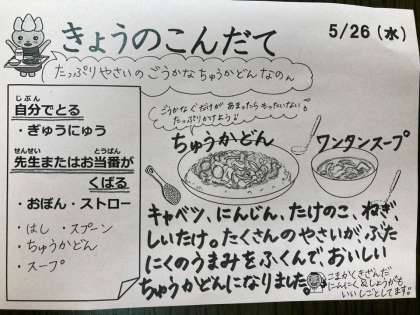 きょうのこんだて
5/26(水)
たっぷりやさいの ごうかな ちゅうかどんなのん
じぶん
自分でとる
・ぎゅうにゅう
せんせい とうばん
先生またはお当番が
くばる
・おぼん・ストロー
・はし ・スプーン
・ちゅうかどん
・スープ
ごうかな ぐだけが あまったら もったいない!
たっぷりかけよう!
ちゅうかどん
ワンタンスープ
キャベツ、にんじん、たけのこ、ねぎ、
しいたけ。たくさんのやさいが、ぶた
にくのうまみをふくんで、おいしい
ちゅうかどんになりました。
こまかくきざんだ
にんにく&しょうがも
いいしごとしてます。